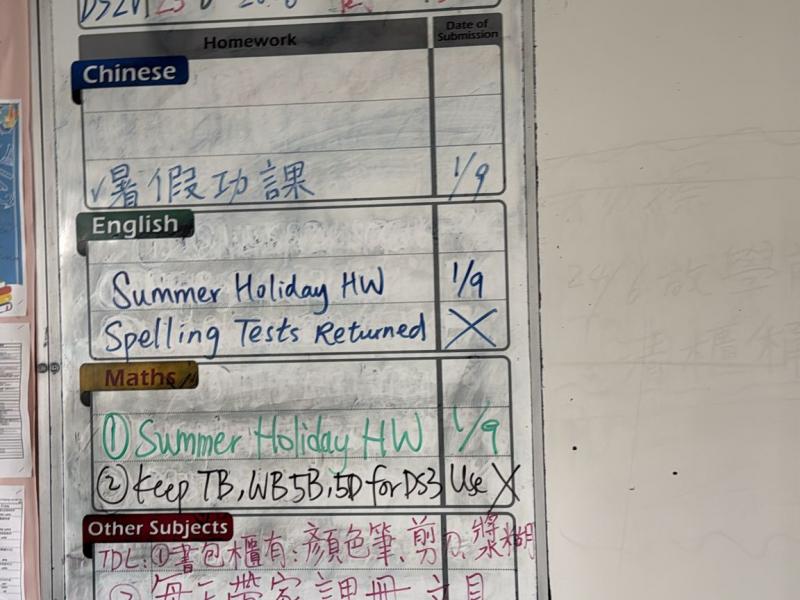 Homework Date of Submission
Chinese
✓暑假功課 1/9
English
Summer Holiday HW 1/9
Spelling Tests Returned X
Maths
① Summer Holiday HW 1/9
② Keep TB, WB 5B, 5D for DS3 Use X
Other Subjects
TDL: ①書包櫃有:顏色筆、剪刀、漿糊